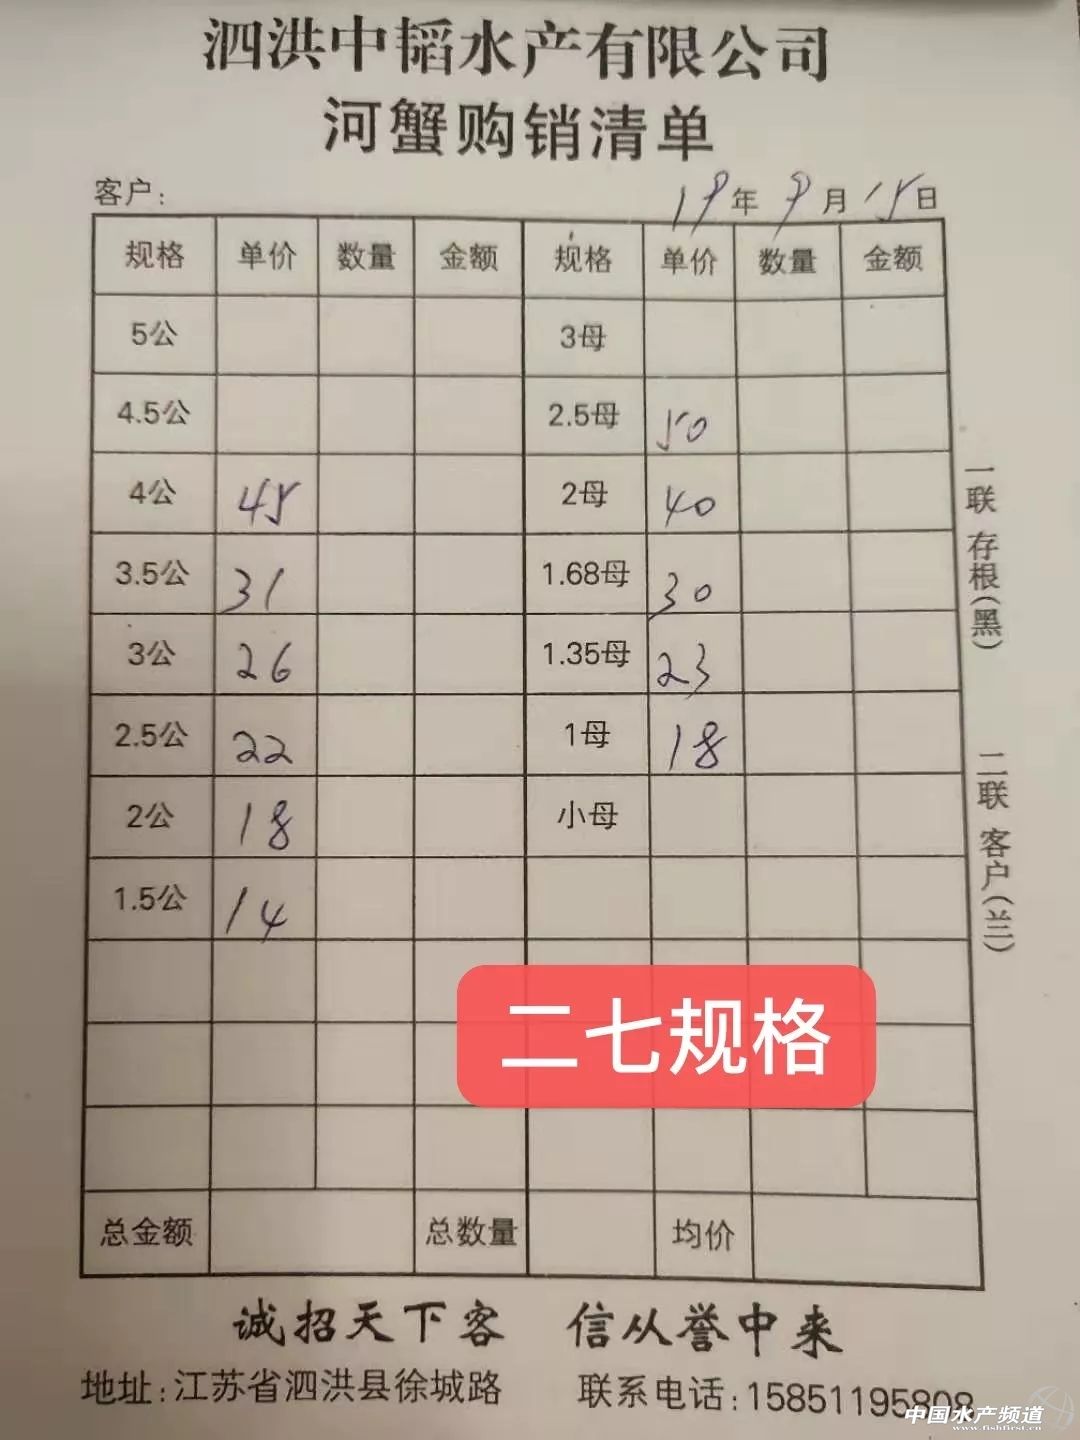 泗洪中韬水产有限公司
河蟹购销清单
客户: 19年9月15日
规格 单价 数量 金额 规格 单价 数量 金额
5公 3母
4.5公 2.5母 50
4公 45 2母 40
3.5公 31 1.68母 30
3公 26 1.35母 23
2.5公 22 1母 18
2公 18 小母
1.5公 14
一联 存根(黑)
二联 客户(兰)
二七规格
总金额 总数量 均价
诚招天下客 信从誉中来
地址:江苏省泗洪县徐城路 联系电话:15851195808
中国水产频道
www.fishfirst.cn